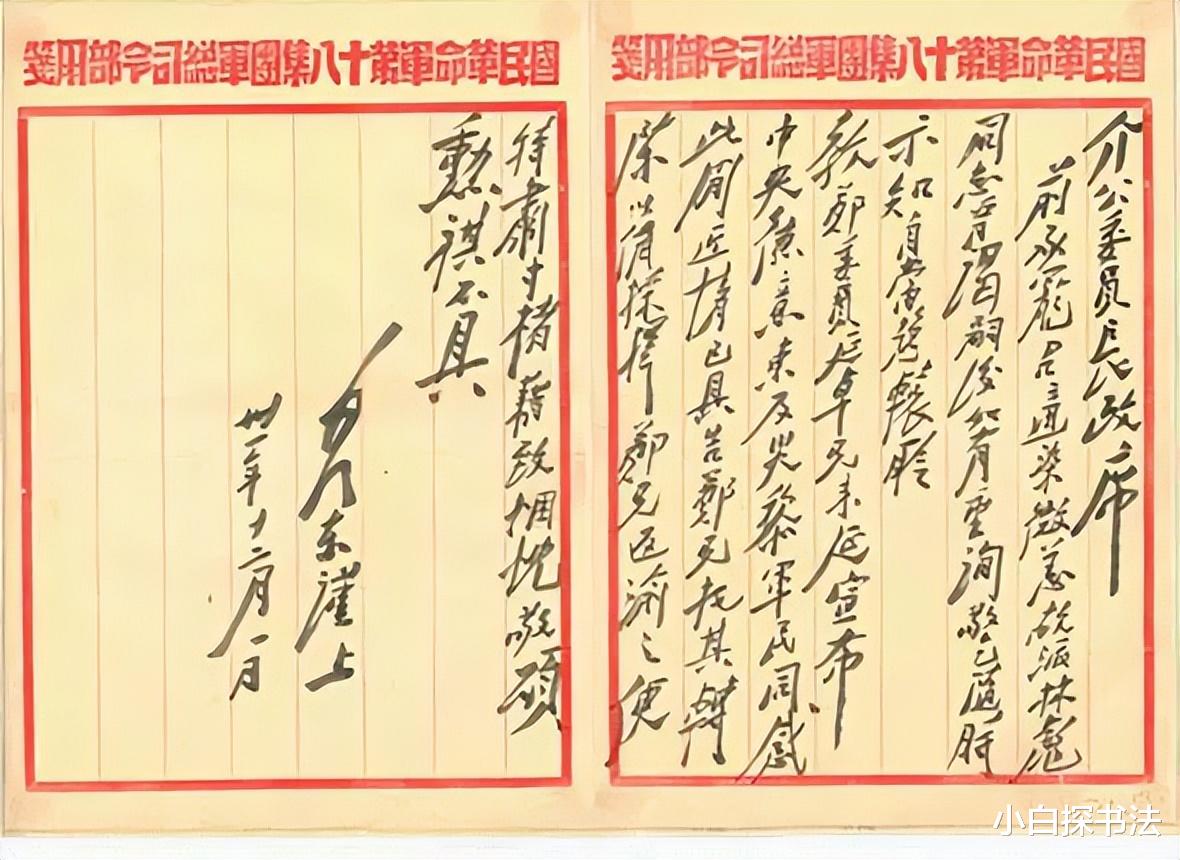 國民革命軍第十八集團軍總司令部用箋
介公委員長政席
前承寵召適染微恙故派林彪
同志晉謁嗣後如有垂詢敬乞隨時
示知自當趨轅聆
教鄭委員延卓兄來延宣布
中央德意惠及災黎軍民同感
此間近情已具告鄭兄托其轉
陳以備採擇鄭兄返渝之便
國民革命軍第十八集團軍總司令部用箋
特肅寸楮藉致悃忱敬頌
勳祺不具
毛澤東謹上
卅一年十二月一日
小白探书法